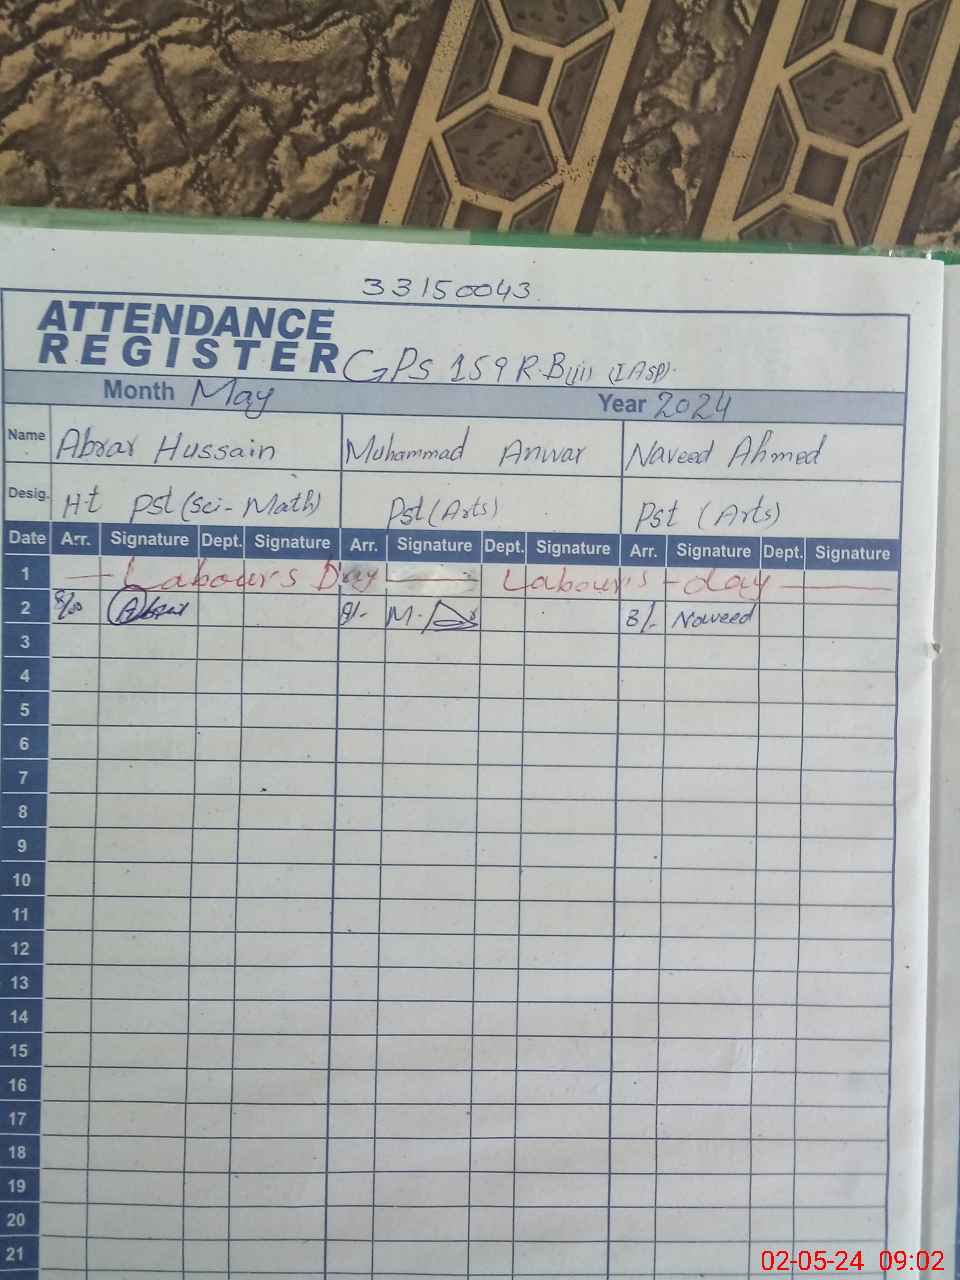 33150043
ATTENDANCE
REGISTER GPS 159 R.B (IASP).
Month May Year 2024
Name Abrar Hussain Muhammad Anwar Naveed Ahmed
Desig. H-t Pst (Sci-Math) Pst (Arts) Pst (Arts)
Date Arr. Signature Dept. Signature Arr. Signature Dept. Signature Arr. Signature Dept. Signature
1 Labour's Day Labour's day
2 8/00 Abrar 8/- M. 8/- Naveed
3
4
5
6
7
8
9
10
11
12
13
14
15
16
17
18
19
20
21
02-05-24 09:02